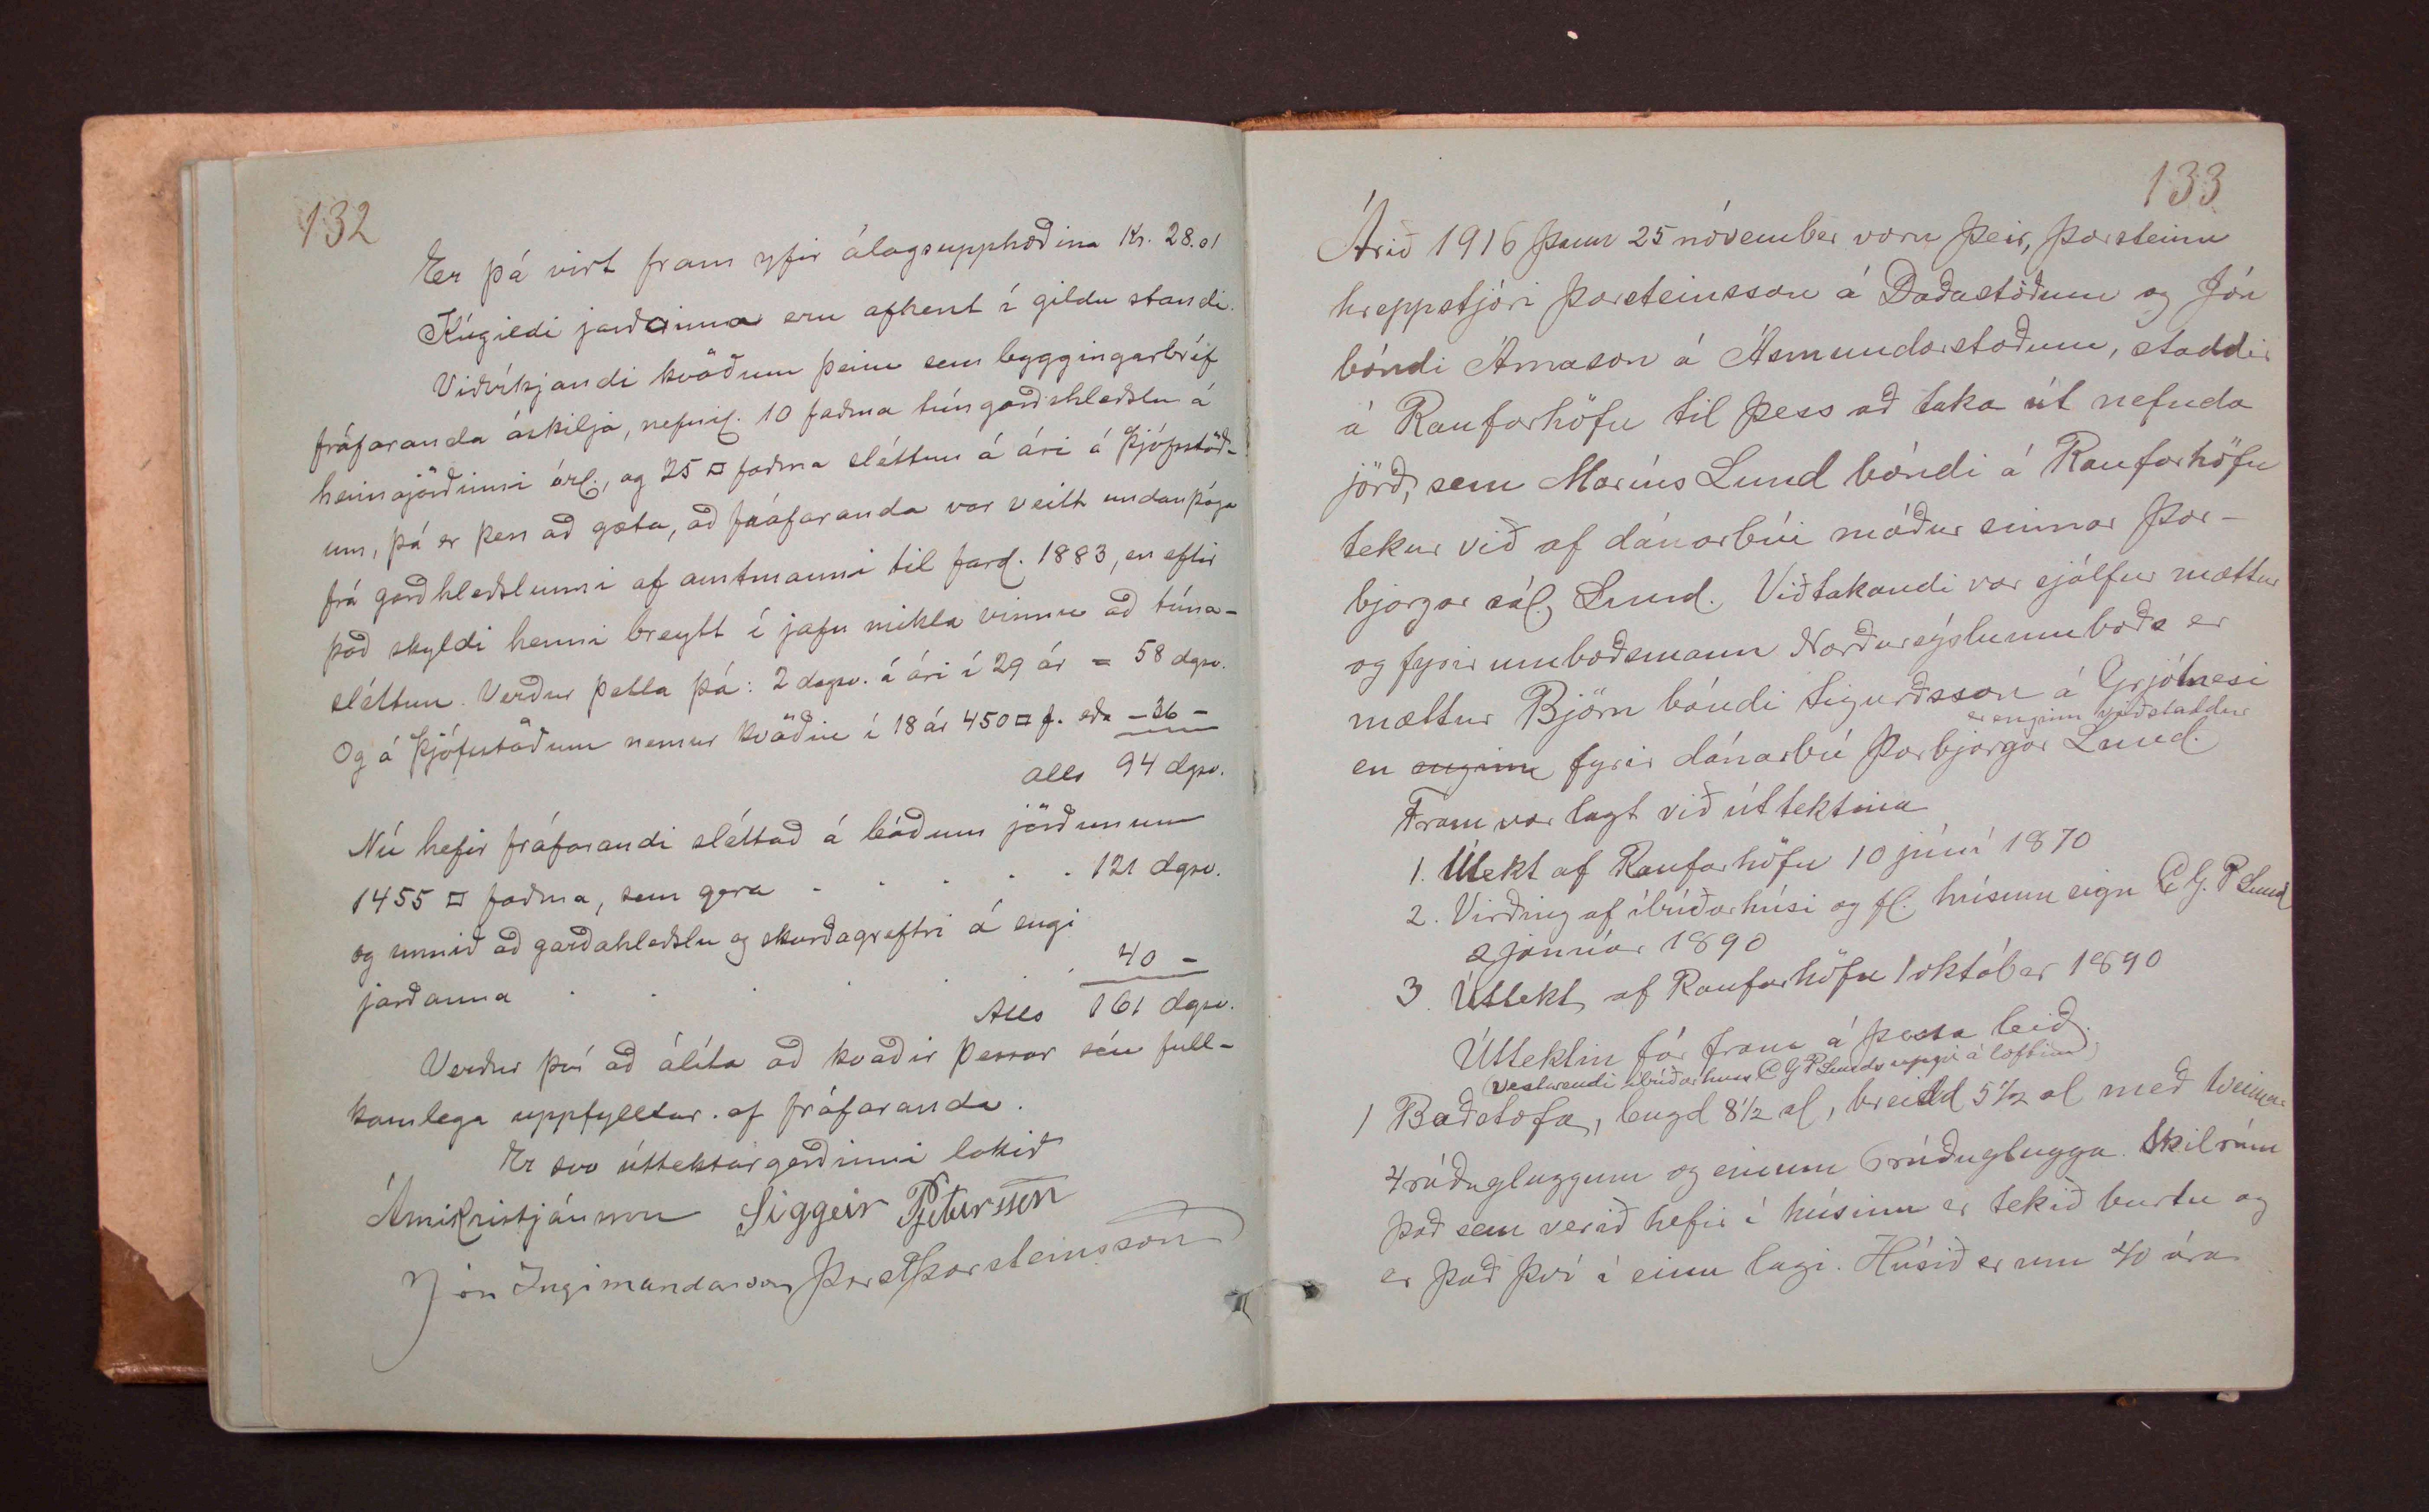 132
Er þá virt fram yfir álagsupphæðina Kr. 28.01
Kúgildi jarðarinnar eru afhent í gildu standi.
Viðvíkjandi kvöðum þeim sem byggingarbréf
fráfaranda áskilja, nefnil. 10 faðma túngarðshleðslu á
heimajörðinni árl., og 25 □ faðma sléttun á ári á Þjófsstöð-
um, þá er þess að gæta, að fráfaranda var veitt undanþága
frá garðhleðslunni af amtmanni til fard. 1883, en eftir
það skyldi henni breytt í jafn mikla vinnu að túna-
sléttun. Verður þetta þá: 2 dagsv. á ári í 29 ár = 58 dgsv.
Og á Þjófsstöðum nemur kvöðin í 18 ár 450 □ f. eða – 36 –
alls 94 dgsv.
Nú hefir fráfarandi sléttað á báðum jörðunum
1455 □ faðma, sem gera . . . . . 121 dgsv.
og unnið að garðahleðslu og skurðagreftri á engi
jarðanna . . . . . 40 –
Alls 161 dgsv.
Verður því að álíta að kvaðir þessar séu full-
komlega uppfylltar af fráfaranda.
Er svo úttektargerðinni lokið
Árni Kristjánsson Siggeir Pjetursson
Jón Ingimundarson Þorst Þorsteinsson
133
Árið 1916 þann 25 nóvember voru þeir, Þorsteinn
hreppstjóri Þorsteinsson á Daðastöðum og Jón
bóndi Árnason á Ásmundarstöðum, staddir
á Raufarhöfn til þess að taka út nefnda
jörð, sem Maríus Lund bóndi á Raufarhöfn
tekur við af dánarbúi móður sinnar Þor-
bjargar sál. Lund. Viðtakandi var sjálfur mættur
og fyrir umboðsmann Norðursýsluumboðs er
mættur Björn bóndi Sigurðsson á Grjótnesi
er enginn viðstaddur
en enginn fyrir dánarbú Þorbjargar Lund.
Fram var lagt við úttektina
1. Úttekt af Raufarhöfn 10 júní 1870
2. Virðing af íbúðarhúsi og fl. húsum eign C. G. P Lund
2 janúar 1890
3. Úttekt af Raufarhöfn 1 október 1890
Úttektin fór fram á þessa leið.
Vesturendi íbúðarhúss C G P Lunds uppi á loftinu
1 Baðstofa, lengd 8 1/2 al, breidd 5 1/2 al með tveimur
4 rúðugluggum og einum 6 rúðuglugga. Skilrúm
það sem verið hefir í húsinu er tekið burtu og
er það því í einu lagi. Húsið er um 40 ára